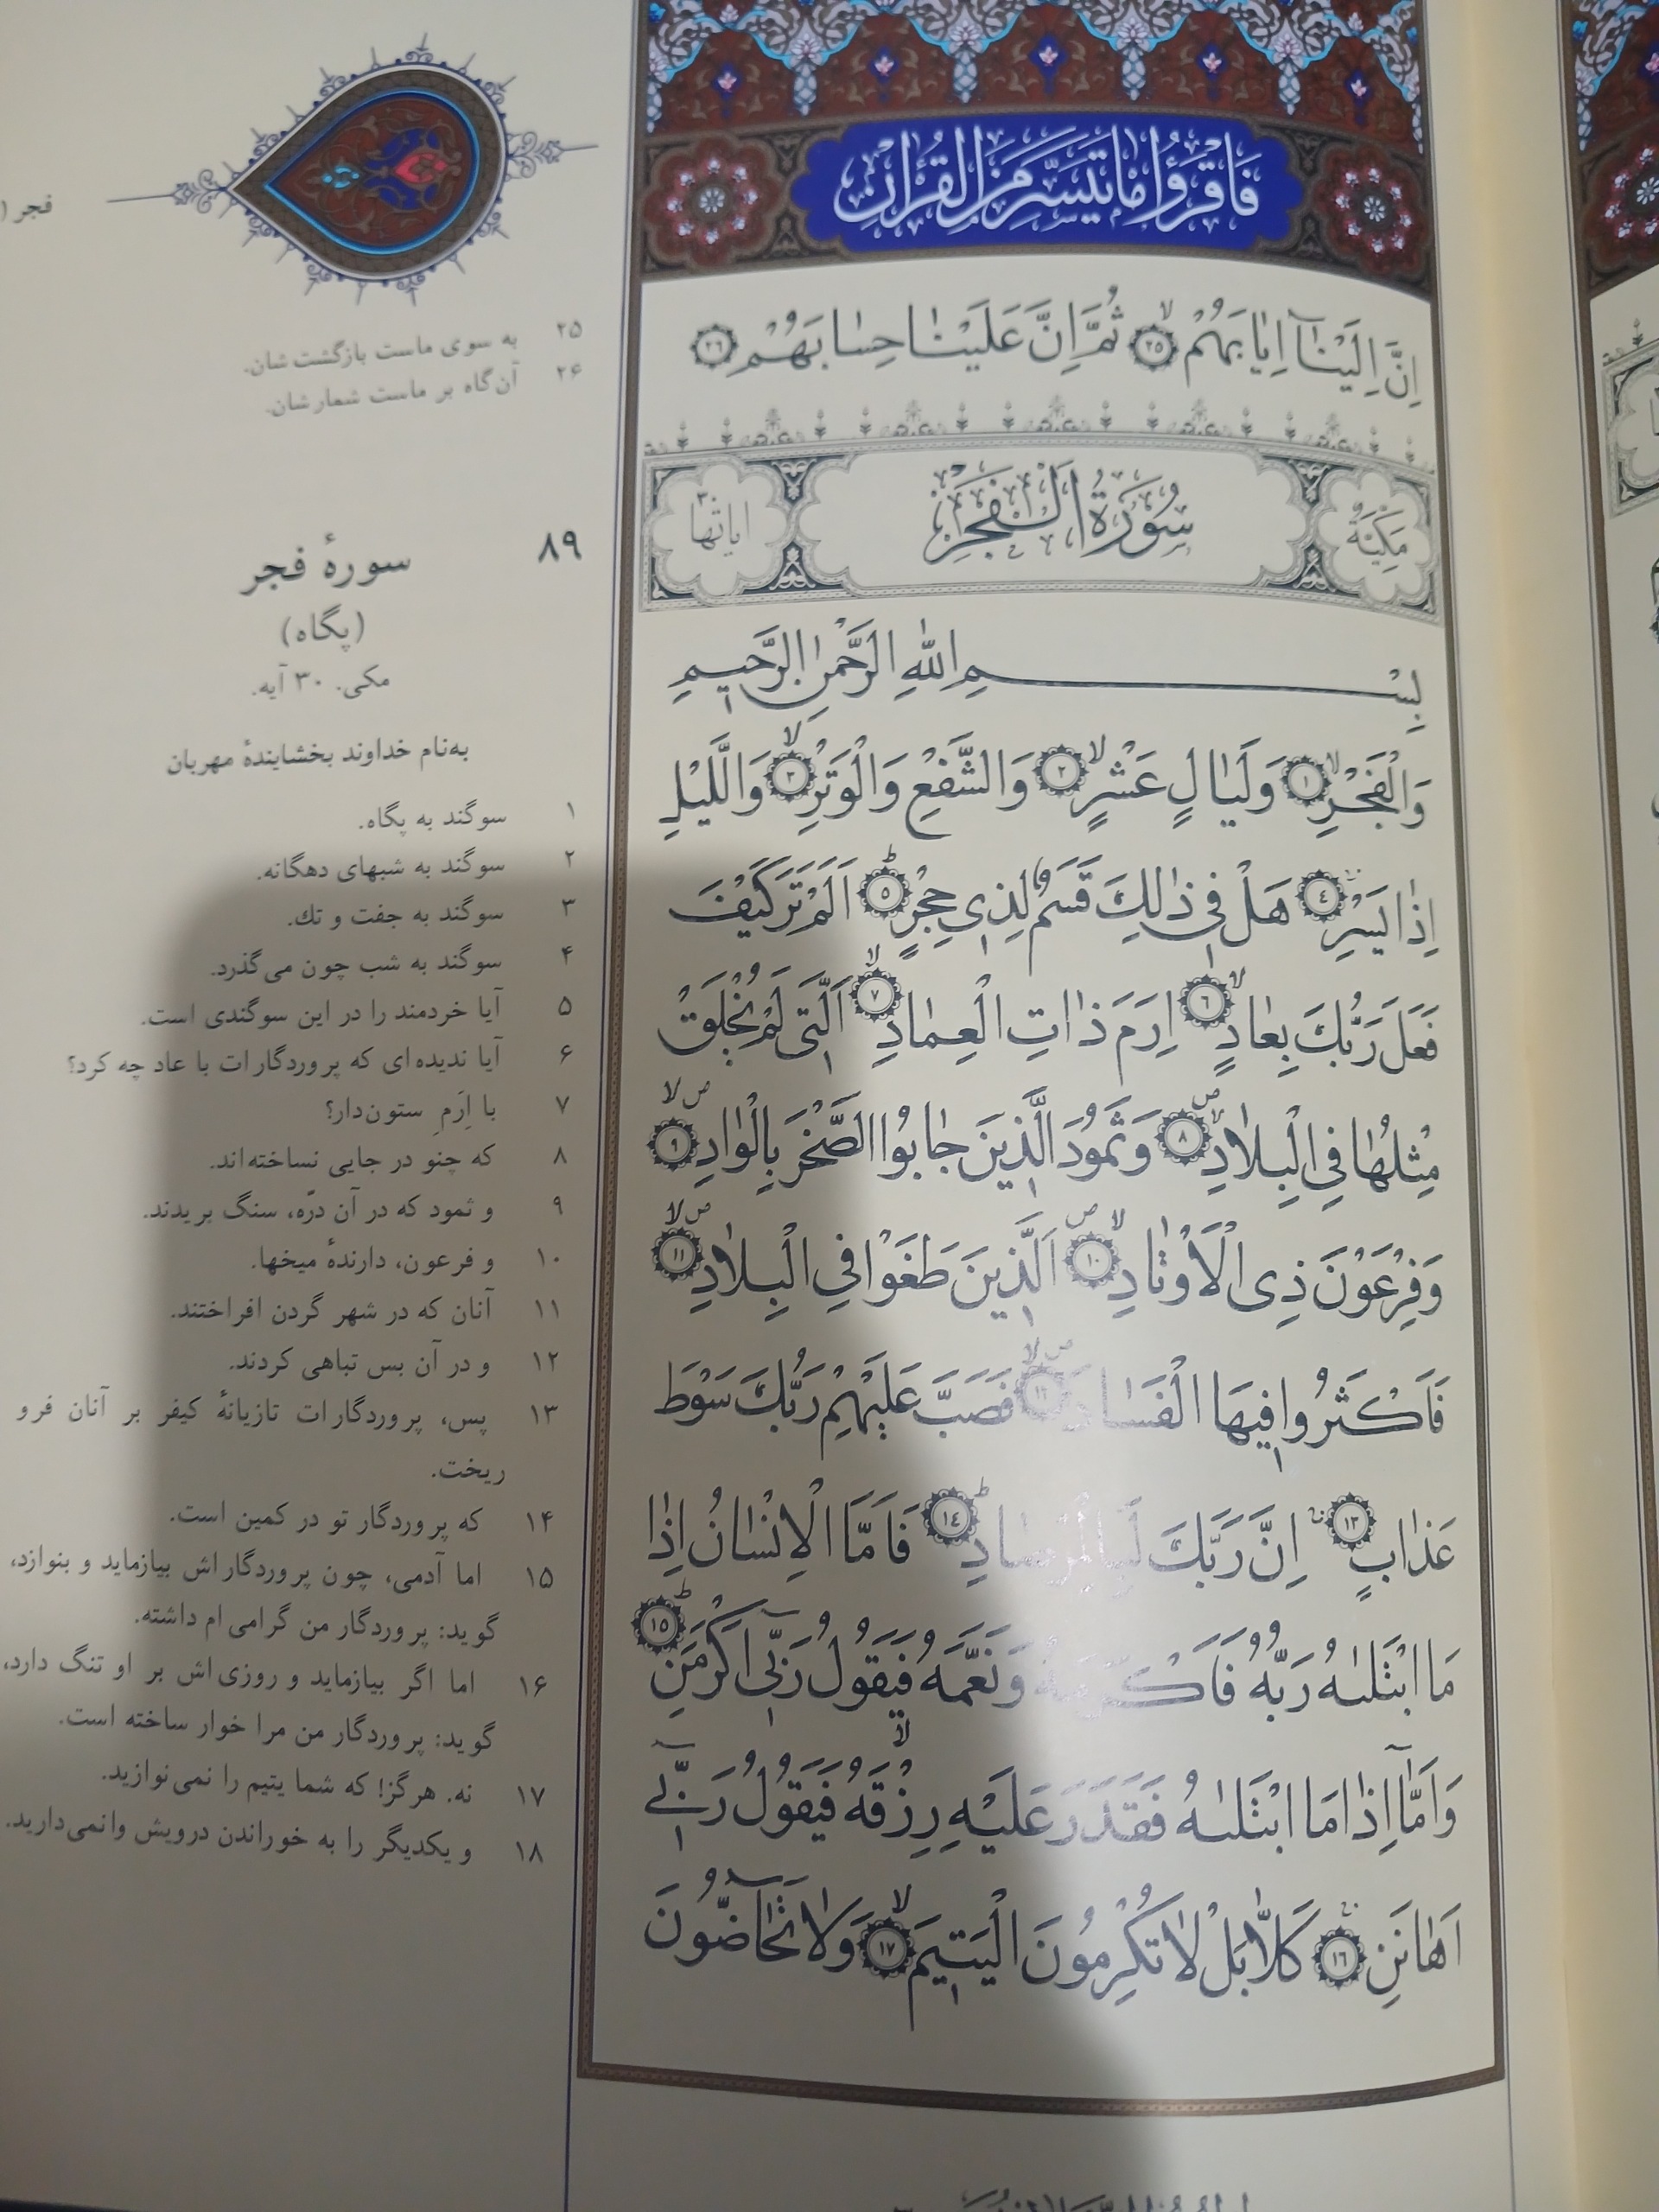 فَاقْرَؤُا مَا تَيَسَّرَ مِنَ الْقُرْاٰنِ
اِنَّ اِلَيْنَآ اِيَابَهُمْ ۙ ﴿٢٥﴾ ثُمَّ اِنَّ عَلَيْنَا حِسَابَهُمْ ﴿٢٦﴾
مَكِّيَّةٌ
سُورَةُ الْفَجْرِ
اٰيَاتُهَا ٣٠
بِسْمِ اللّٰهِ الرَّحْمٰنِ الرَّحِيمِ
وَالْفَجْرِ ۙ ﴿١﴾ وَلَيَالٍ عَشْرٍ ۙ ﴿٢﴾ وَالشَّفْعِ وَالْوَتْرِ ۙ ﴿٣﴾ وَالَّيْلِ
اِذَا يَسْرِ ﴿٤﴾ هَلْ فِي ذٰلِكَ قَسَمٌ لِذِي حِجْرٍ ؕ ﴿٥﴾ اَلَمْ تَرَ كَيْفَ
فَعَلَ رَبُّكَ بِعَادٍ ۙ ﴿٦﴾ اِرَمَ ذَاتِ الْعِمَادِ ۙ ﴿٧﴾ اَلَّتِي لَمْ يُخْلَقْ
مِثْلُهَا فِي الْبِلَادِ ﴿٨﴾ وَثَمُودَ الَّذِينَ جَابُوا الصَّخْرَ بِالْوَادِ ﴿٩﴾
وَفِرْعَوْنَ ذِي الْاَوْتَادِ ﴿١٠﴾ اَلَّذِينَ طَغَوْا فِي الْبِلَادِ ﴿١١﴾
فَاَكْثَرُوا فِيهَا الْفَسَادَ ﴿١٢﴾ فَصَبَّ عَلَيْهِمْ رَبُّكَ سَوْطَ
عَذَابٍ ﴿١٣﴾ اِنَّ رَبَّكَ لَبِالْمِرْصَادِ ؕ ﴿١٤﴾ فَاَمَّا الْاِنْسَانُ اِذَا
مَا ابْتَلٰىهُ رَبُّهُ فَاَكْرَمَهُ وَنَعَّمَهُ فَيَقُولُ رَبِّي اَكْرَمَنِ ؕ ﴿١٥﴾
وَاَمَّآ اِذَا مَا ابْتَلٰىهُ فَقَدَرَ عَلَيْهِ رِزْقَهُ ۙ فَيَقُولُ رَبِّيٓ
اَهَانَنِ ﴿١٦﴾ كَلَّا بَلْ لَا تُكْرِمُونَ الْيَتِيمَ ۙ ﴿١٧﴾ وَلَا تَحَآضُّونَ
فجر (
۲۵ به سوی ماست بازگشت شان.
۲۶ آن‌گاه بر ماست شمارشان.
۸۹ سورهٔ فجر
(پگاه)
مکی. ۳۰ آیه.
به‌نام خداوند بخشایندهٔ مهربان
۱ سوگند به پگاه.
۲ سوگند به شبهای دهگانه.
۳ سوگند به جفت و تك.
۴ سوگند به شب چون می‌گذرد.
۵ آیا خردمند را در این سوگندی است.
۶ آیا ندیده‌ای که پروردگارات با عاد چه کرد؟
۷ با اِرَمِ ستون‌دار؟
۸ که چنو در جایی نساخته‌اند.
۹ و ثمود که در آن درّه، سنگ بریدند.
۱۰ و فرعون، دارندهٔ میخها.
۱۱ آنان که در شهر گردن افراختند.
۱۲ و در آن بس تباهی کردند.
۱۳ پس، پروردگارات تازیانهٔ کیفر بر آنان فرو
ریخت.
۱۴ که پروردگار تو در کمین است.
۱۵ اما آدمی، چون پروردگاراش بیازماید و بنوازد،
گوید: پروردگار من گرامی ام داشته.
۱۶ اما اگر بیازماید و روزی‌اش بر او تنگ دارد،
گوید: پروردگار من مرا خوار ساخته است.
۱۷ نه. هرگز! که شما یتیم را نمی‌نوازید.
۱۸ و یکدیگر را به خوراندن درویش وانمی‌دارید.